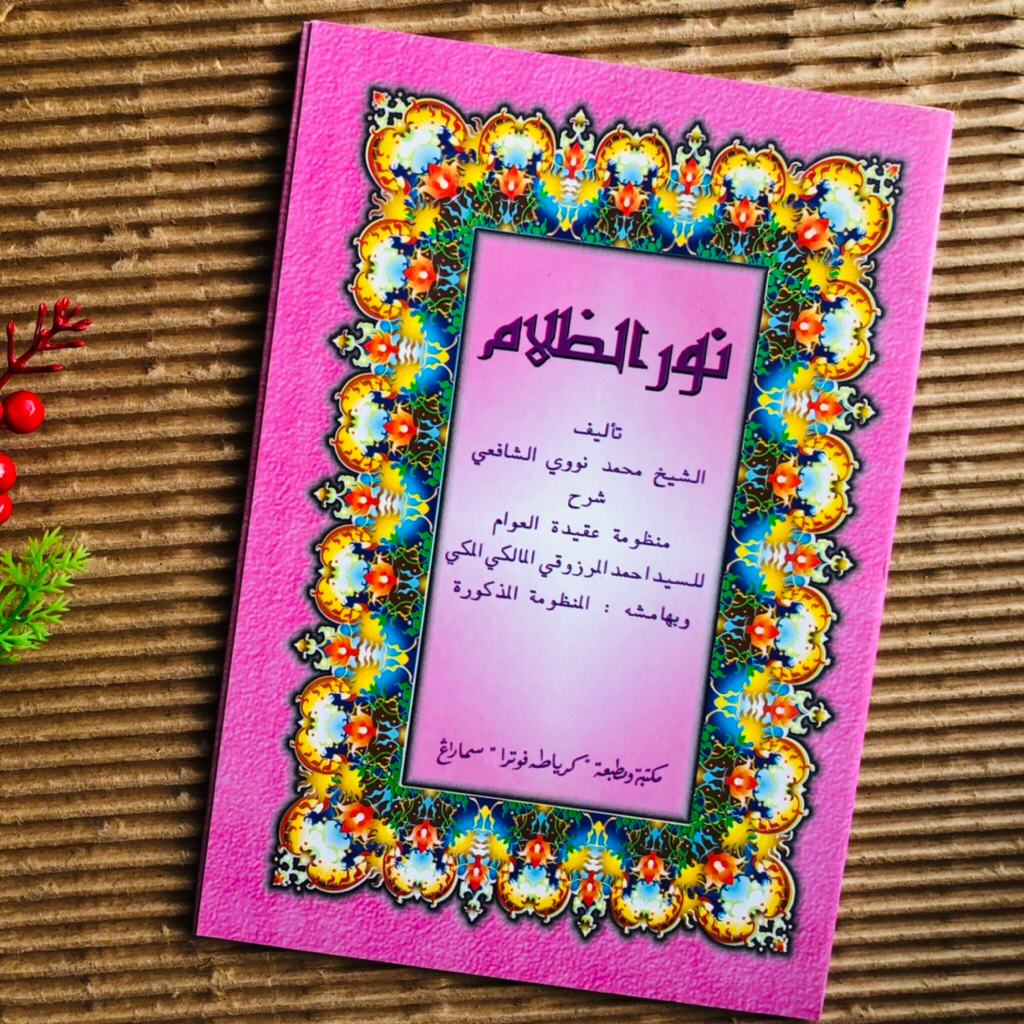 نور الظلام
تأليف
الشيخ محمد نووي الشافعي
شرح
منظومة عقيدة العوام
للسيد احمد المرزوقي المالكي المكي
وبهامشه : المنظومة المذكورة
مكتبة ومطبعة "كرياطه فوترا" سماراڠ